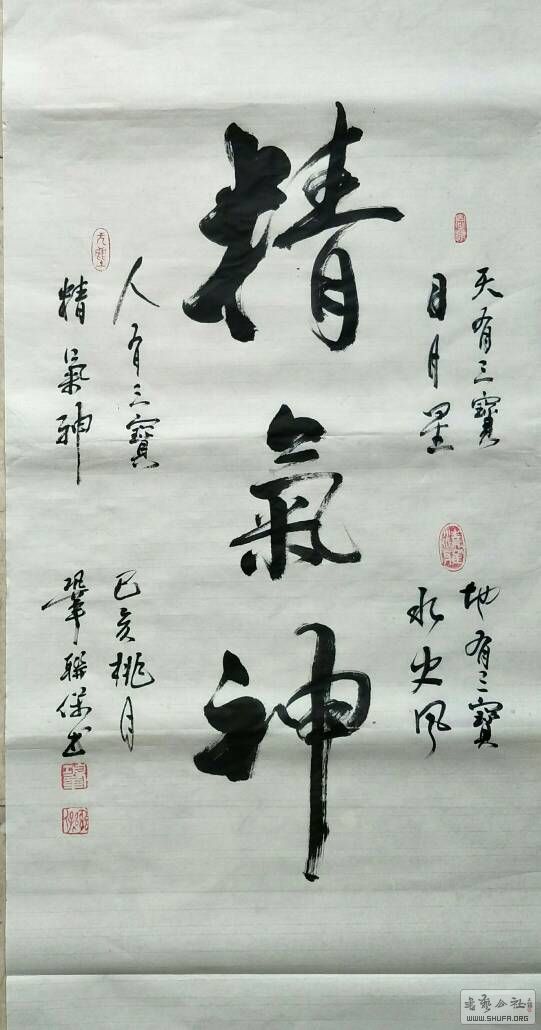 精氣神
天有三寶
日月星
地有三寶
水火风
人有三寶
精氣神
己亥桃月
鞏聯保书
WWW.SHUFA.ORG